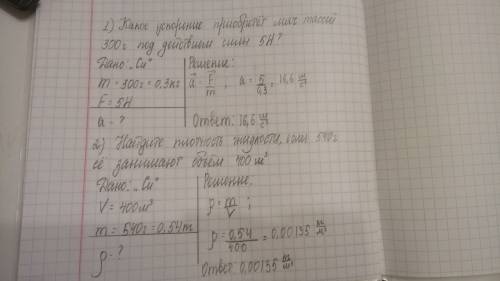 1) Какое ускорение приобретёт мяч массой
300г под действием силы 5Н?
Дано: "Си" Решение:
m = 300г = 0,3кг a = F/m , a = 5/0,3 = 16,6 м/с²
F = 5Н
a - ? Ответ: 16,6 м/с²
2) Найдите плотность жидкости, если 540г
её занимают объём 400 м³
Дано: "Си" Решение:
V = 400м³ ρ = m/V ;
m = 540г = 0,54т ρ = 0,54/400 = 0,00135 кг/м³
ρ = ? Ответ: 0,00135 кг/м³